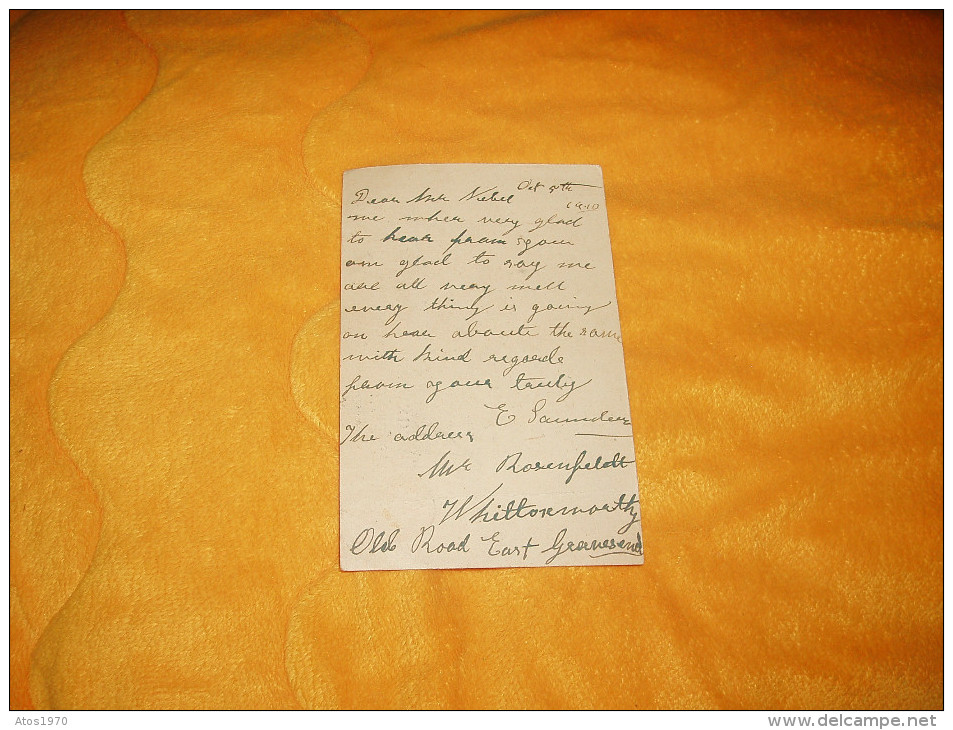 Oct 5th
1910
Dear Mr Niebel
me wher very glad
to hear fram your
am glad to say me
are all very well
every thing is going
on hear aboute the same
with kind regards
fram yours truly
E Saunders
The address
Mr Rosenfeldt
Whittonworthy
Old Road East Gravesend
Atos1970
www.delcampe.net